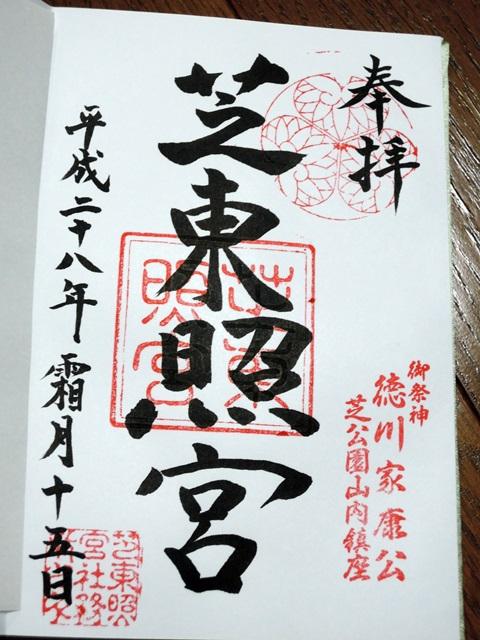 奉拝
御祭神
徳川家康公
芝公園山内鎮座
芝東照宮
芝東照宮
平成二十八年霜月十五日
芝東照
宮社務